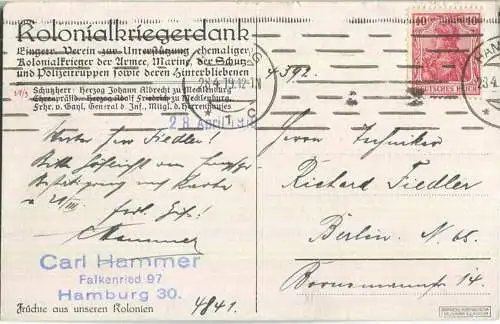 Kolonialkriegerdank
Eingetr. Verein zur Unterstützung ehemaliger
Kolonialkrieger der Armee, Marine, der Schutz-
und Polizeitruppen sowie deren Hinterbliebenen
Schutzherr: Herzog Johann Albrecht zu Mecklenburg
Ehrenpräsid. Herzog Adolf Friedrich zu Mecklenburg.
Frhr. v. Gayl, General d. Inf., Mitgl. d. Herrenhauses
4392.
28.4.19.12-1N
1 C
28. April 1919
10 10
DEUTSCHES REICH
HAM
23.4
Werter Herr Fiedler!
Bitte höflichst um
Bestätigung
a 21/III.
Hammer
Carl Hammer
Falkenried 97
Hamburg 30.
Früchte aus unseren Kolonien
4841.
Herrn Techniker
Richard Fiedler
Berlin. N. 65.
14.